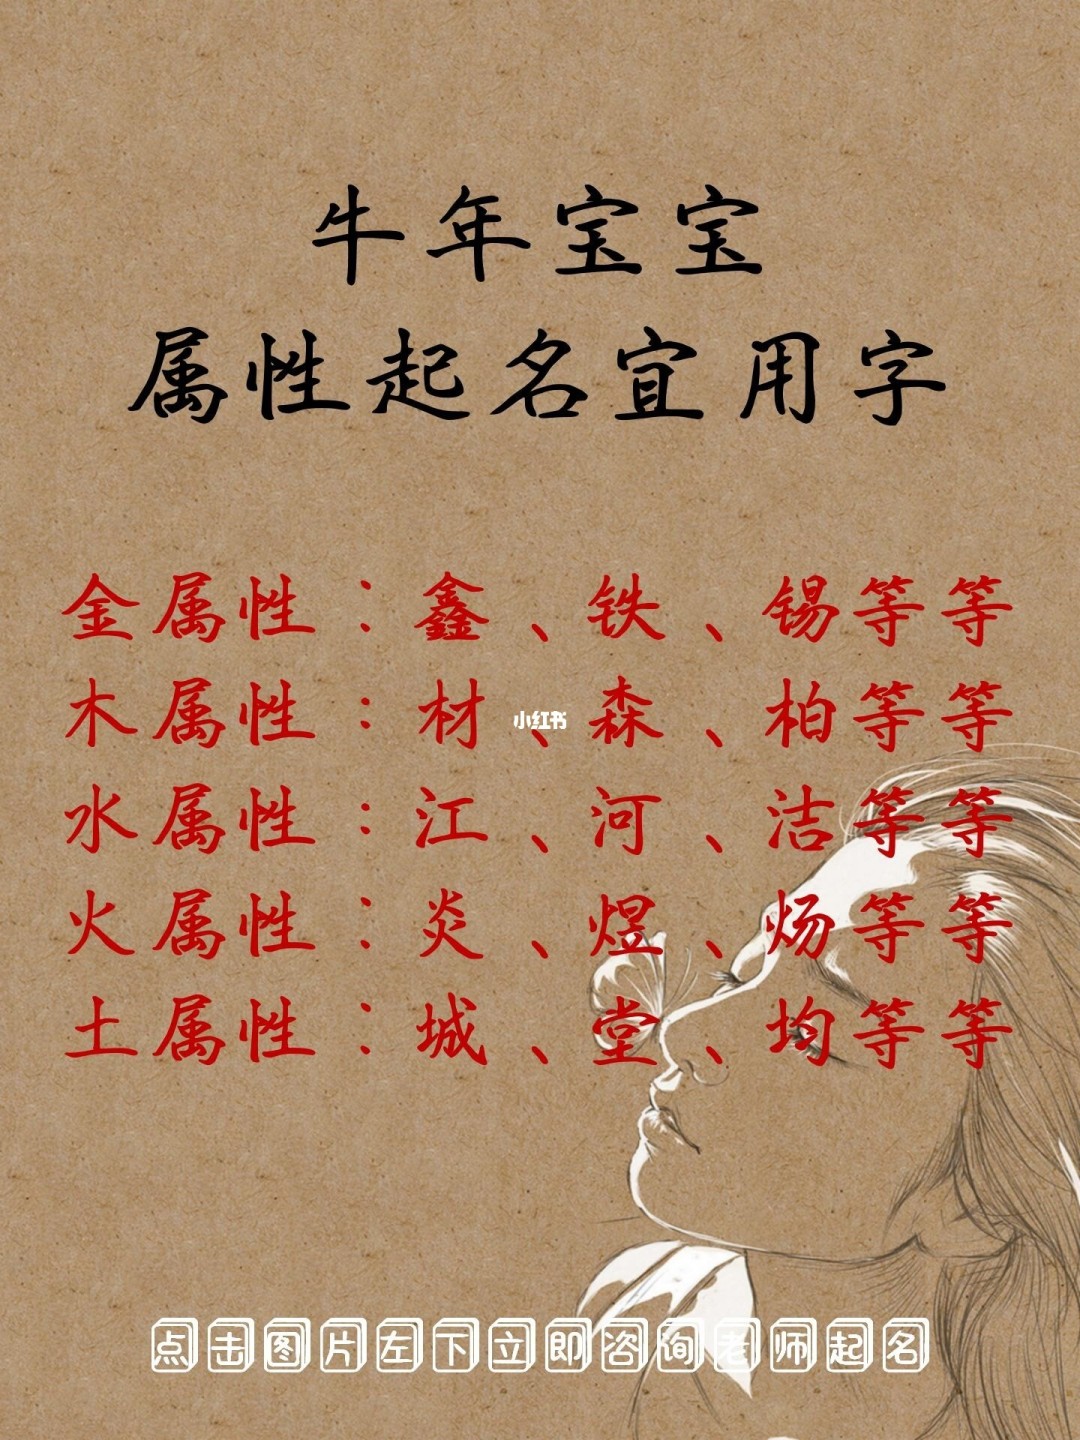 牛年宝宝
属性起名宜用字
金属性：鑫、铁、锡等等
木属性：材、森、柏等等
小红书
水属性：江、河、洁等等
火属性：炎、煜、炀等等
土属性：城、堂、均等等
点击图片左下立即咨询老师起名